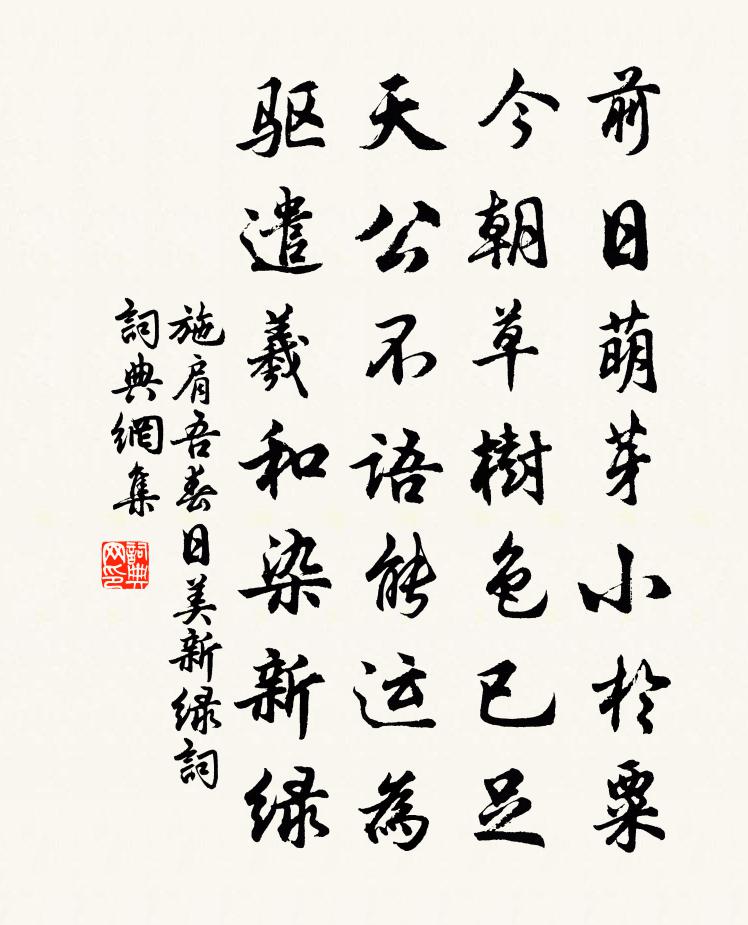 前日萌芽小於粟
今朝草樹色已足
天公不语能运為
驱遣羲和染新绿
施肩吾春日美新绿詞
詞典網集
詞典网印